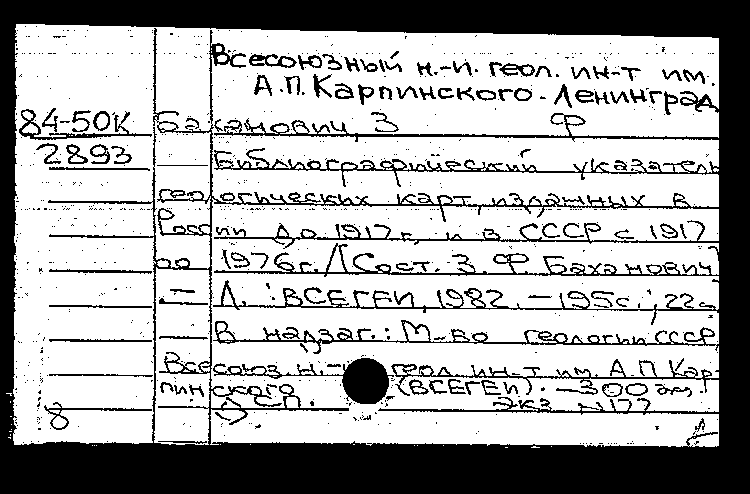 Всесоюзный н.-и. геол. ин-т им.
А.П. Карпинского. Ленинград
84-50К Баканович, З Ф
2893 Библиографический указатель
геологических карт, изданных в
России до 1917 г. и в СССР с 1917
по 1976 г. / [Сост. З. Ф. Баханович]
.— Л. : ВСЕГЕИ, 1982. — 195 с.; 22 с
В надзаг.: М-во геологии СССР,
Всесоюз. н.-и геол. ин-т им. А.П Кар-
пинского (ВСЕГЕИ). — 300 эк.
ДСП. Экз. N177
8